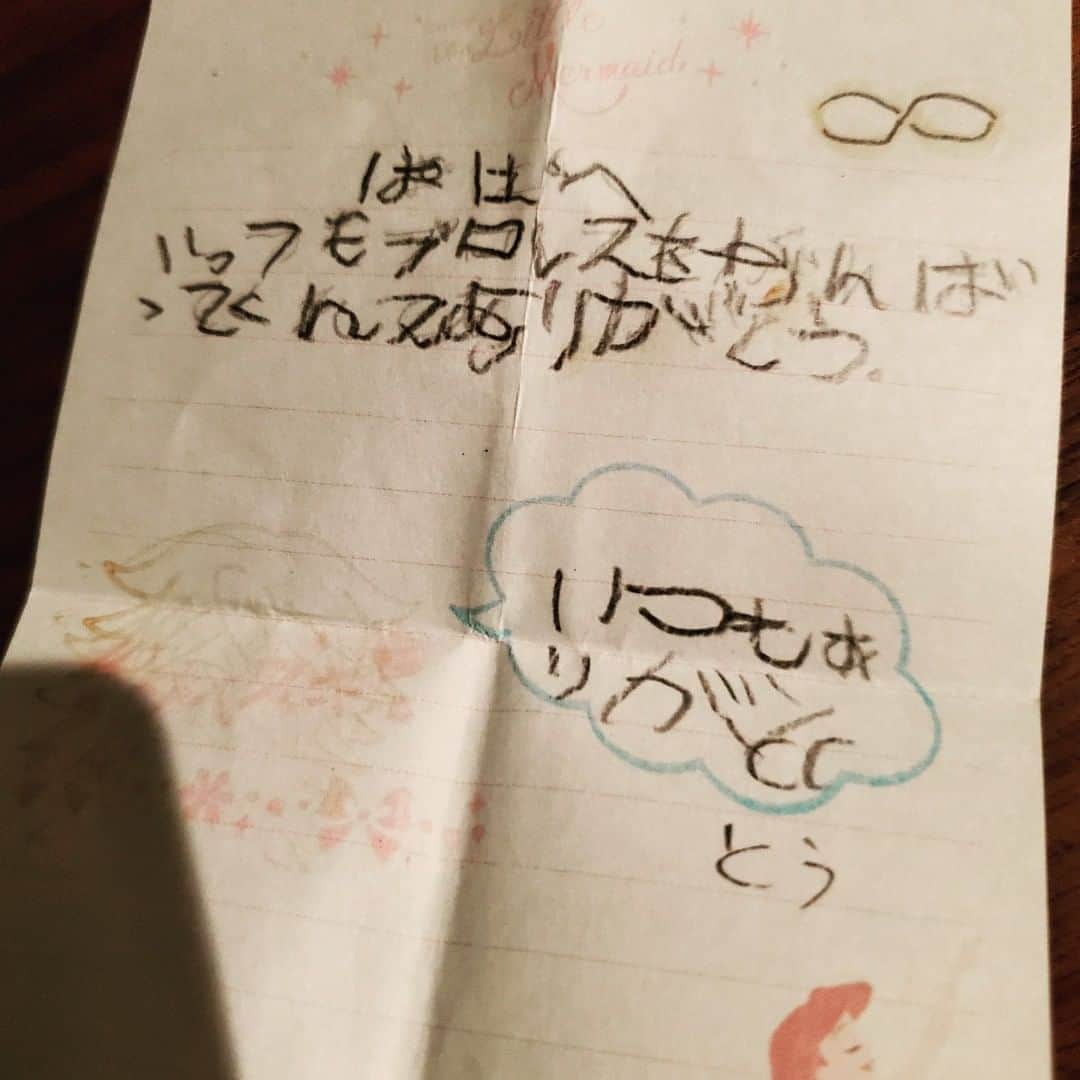 Little
Mermaid
ぱぱへ
いつもプロレスをがんば
ってくれてありがとう.
いつもあ
りがと
とう